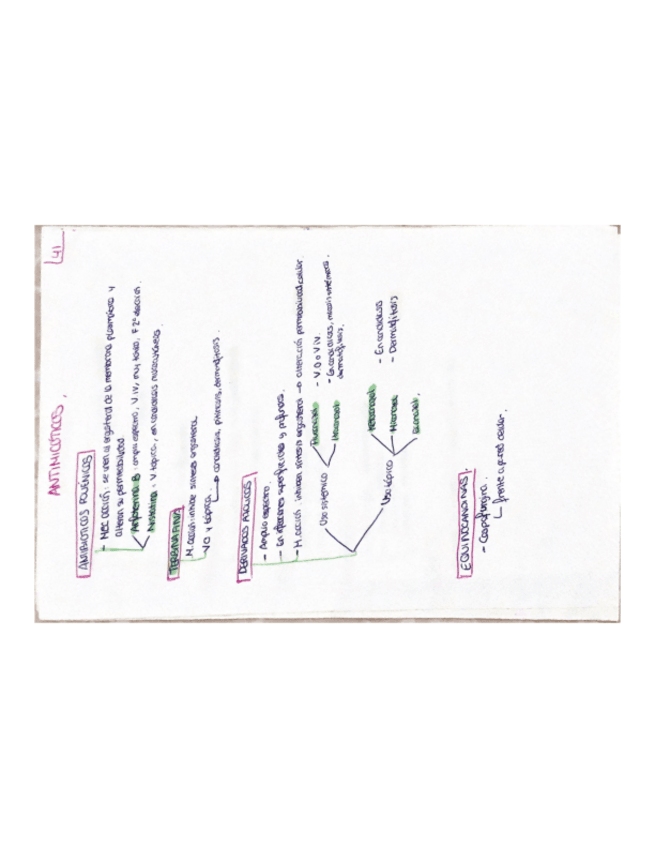 41
ANTIMICÓTICOS.
ANTIBIÓTICOS POLIÉNICOS
- Mec. acción: se unen al ergosterol de la membrana plasmática y
alteran su permeabilidad.
Anfotericina B: amplio espectro, V. iv, muy tóxico, F 2ª elección.
Nistatina: V. tópica, en candidiasis mucocutáneas.
TERBINAFINA
M. acción: inhibe síntesis ergosterol
VO y tópica. → candidiasis, pitiriasis, dermatofitosis.
DERIVADOS AZÓLICOS
- Amplio espectro.
- En infecciones superficiales y profundas.
- M. acción: inhiben síntesis ergosterol → alteración permeabilidad celular.
Uso sistémico
Fluconazol
- V.O o V iv.
- En candidiasis,
dermatofitosis.
Uso tópico
Ketoconazol
- En candidiasis
- Dermatofitosis
EQUINOCANDINAS.
- Caspofungina.
frente a pared celular.